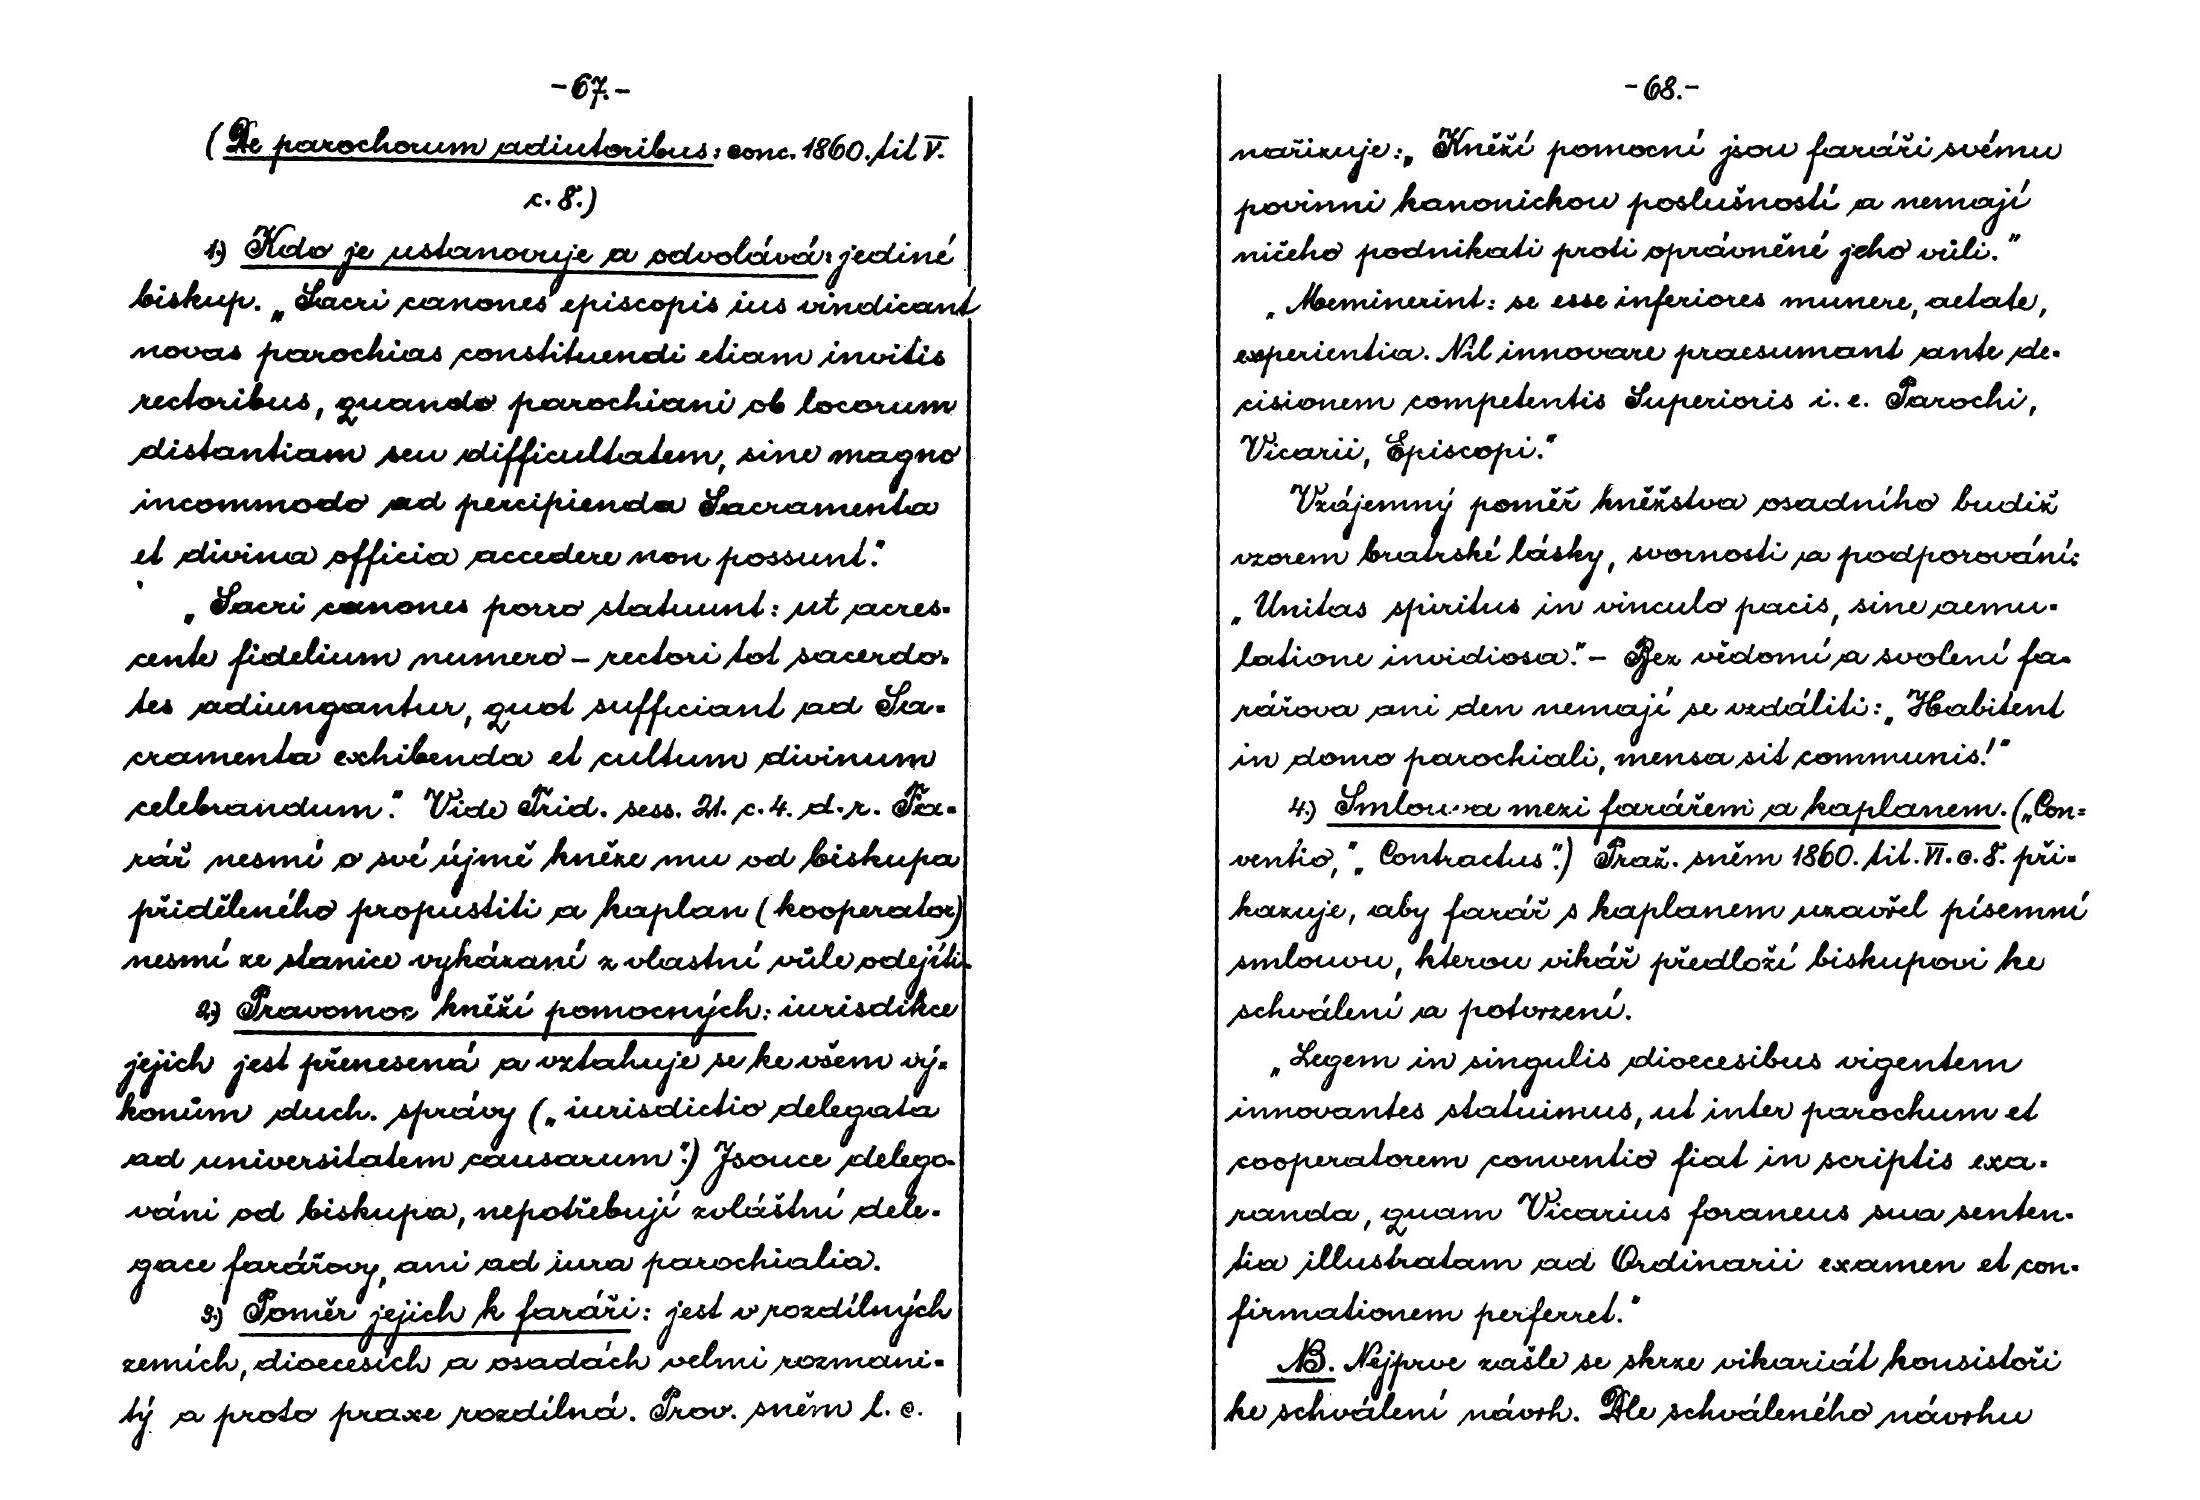 -67.-
(De parochorum adiutoribus: conc. 1860. tit V.
c. 8.)
1.) Kdo je ustanovuje a odvolává: jediné
biskup. „Sacri canones episcopis ius vindicant
novas parochias constituendi etiam invitis
rectoribus, quando parochiani ob locorum
distantiam seu difficultatem, sine magno
incommodo ad percipienda Sacramenta
et divina officia accedere non possunt."
„Sacri canones porro statuunt: ut acres-
cente fidelium numero – rectori tot sacerdo-
tes adiungantur, quot sufficiant ad Sa-
cramenta exhibenda et cultum divinum
celebrandum." Vide Trid. sess. 21. c. 4. d. r. Fa-
rář nesmí o své újmě kněze mu od biskupa
přiděleného propustiti a kaplan (kooperator)
nesmí ze stanice vykázaní z vlastní vůle odejíti.
2.) Pravomoc kněží pomocných: iurisdikce
jejich jest přenesená a vztahuje se ke všem vý-
konům duch. správy („iurisdictio delegata
ad universitatem causarum".) Jsouce delego-
váni od biskupa, nepotřebují zvláštní dele-
gace farářovy, ani ad iura parochialia.
3.) Poměr jejich k faráři: jest v rozdílných
zemích, dioecesích a osadách velmi rozmani-
tý a proto praxe rozdílná. Prov. sněm l. c.
-68.-
nařizuje: „Kněží pomocní jsou faráři svému
povinni kanonickou poslušností a nemají
ničeho podnikati proti oprávněné jeho vůli."
„Meminerint: se esse inferiores munere, aetate,
experientia. Nil innovare praesumant ante de-
cisionem competentis Superioris i. e. Parochi,
Vicarii, Episcopi."
Vzájemný poměř kněžstva osadního budiž
vzorem bratrské lásky, svornosti a podporování:
„Unitas spiritus in vinculo pacis, sine aemu-
latione invidiosa." – Bez vědomí a svolení fa-
rářova ani den nemají se vzdáliti: „Habitent
in domo parochiali, mensa sit communis!"
4.) Smlouva mezi farářem a kaplanem. („Con-
ventio," „Contractus".) Praž. sněm 1860. tit. VI. c. 8. při-
kazuje, aby farář s kaplanem uzavřel písemní
smlouvu, kterou vikář předloží biskupovi ke
schválení a potvrzení.
„Legem in singulis dioecesibus vigentem
innovantes statuimus, ut inter parochum et
cooperatorem conventio fiat in scriptis exa-
randa, quam Vicarius foraneus sua senten-
tia illustratam ad Ordinarii examen et con-
firmationem perferret."
NB. Nejprve zašle se skrze vikariát konsistoři
ke schválení návrh. Dle schváleného návrhu